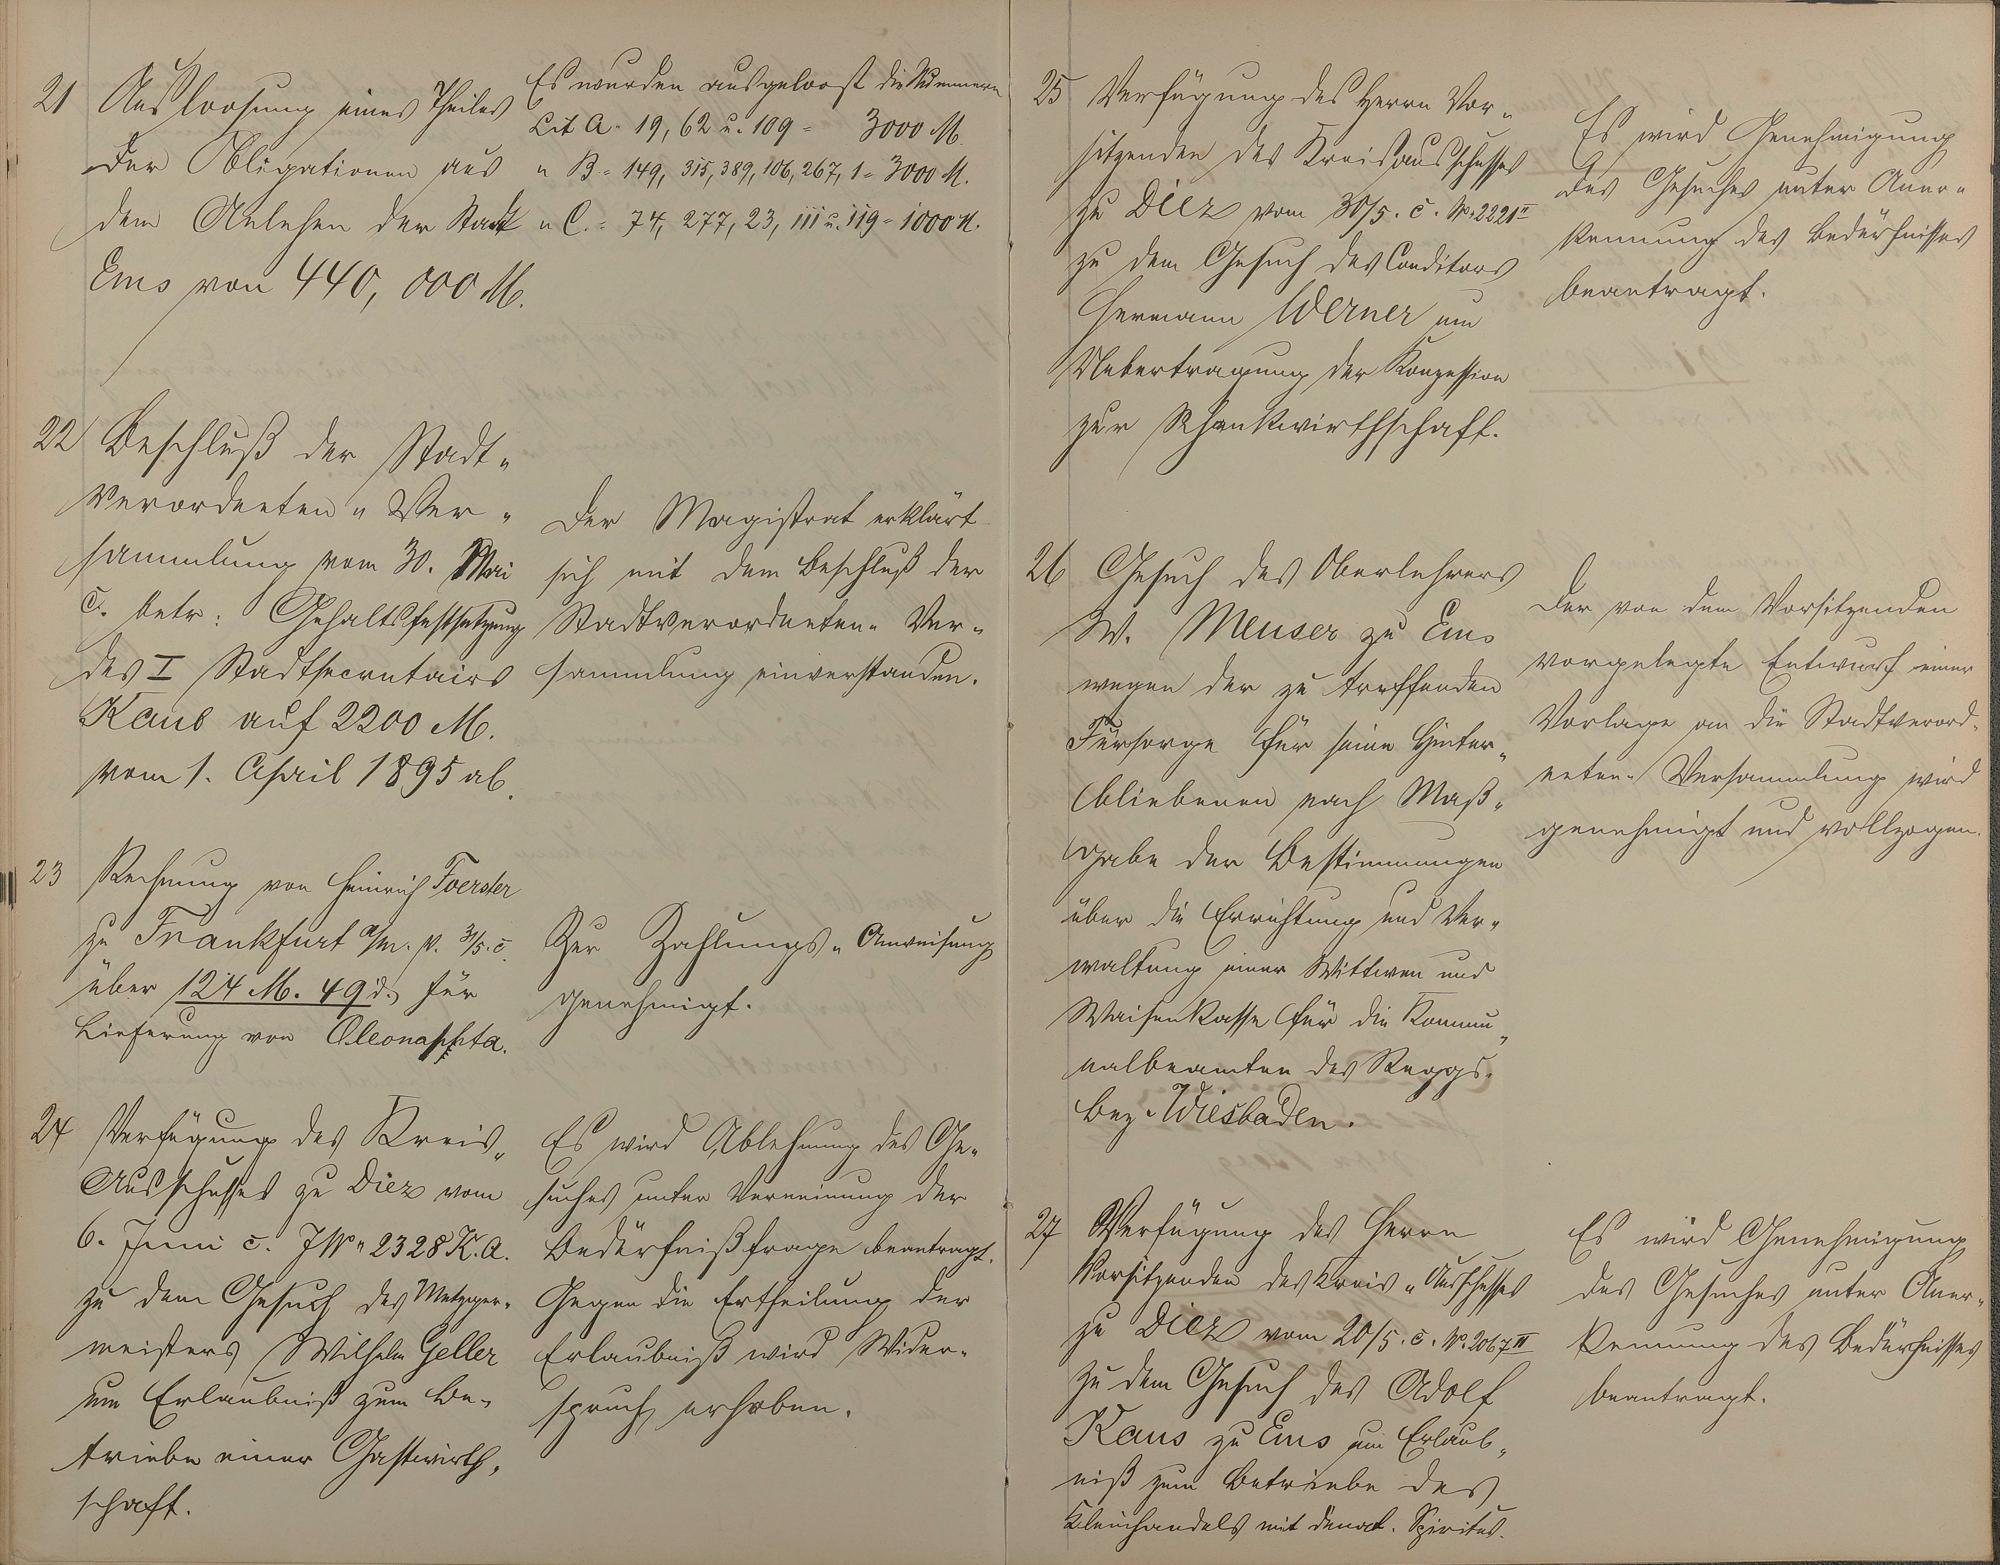 21 Ausloosung eines Theiles
der Obligationen aus
dem Anlehen der Stadt
Ems von 440,000 M.
Es wurden ausgeloost die Nummern
Lit A. 19, 62 u. 109 = 3000 M.
" B = 149, 315, 389, 106, 267, 1 = 3000 M.
" C. = 74, 277, 23, 111 u. 119 = 1000 M.
22 Beschluß der Stadt-
verordneten-Ver-
sammlung vom 30. Mai
c. betr: Gehaltsfestsetzung
des I Stadtsecretairs
Kaul auf 2200 M.
vom 1. April 1895 ab.
Der Magistrat erklärt
sich mit dem Beschluß der
Stadtverordneten-Ver-
sammlung einverstanden.
23 Rechnung von Heinrich Foerster
zu Frankfurt a/m. v. 31/5. c.
über 124 M. 49 d. für
Lieferung von Oleonaphta.
Zur Zahlungs-Anweisung
genehmigt.
24 Verfügung des Kreis-
Ausschusses zu Diez vom
6. Juni c. JNo 2328 K.A.
zu dem Gesuch des Metzger-
meisters Wilhelm Geller
um Erlaubniß zum Be-
triebe einer Gastwirth-
schaft.
Es wird Ablehnung des Ge-
suches unter Verneinung der
Bedürfnißfrage beantragt.
Gegen die Ertheilung der
Erlaubniß wird Wider-
spruch erhoben.
25 Verfügung des Herrn Vor-
sitzenden des Kreisausschusses
zu Diez vom 30/5. c. No. 2221 II
zu dem Gesuch des Conditors
Hermann Werner um
Uebertragung der Konzession
zur Schankwirthschaft.
Es wird Genehmigung
des Gesuches unter Aner-
kennung des Bedürfnisses
beantragt.
26 Gesuch des Oberlehrers
W. Meuser zu Ems
wegen der zu treffenden
Fürsorge für seine Hinter-
bliebenen nach Maß-
gabe der Bestimmungen
über die Errichtung und Ver-
waltung einer Wittwen und
Waisenkasse für die Kommu-
nalbeamten des Reggs.
Bez. Wiesbaden.
Der von dem Vorsitzenden
vorgelegte Entwurf einer
Vorlage an die Stadtverord-
neten-Versammlung wird
genehmigt und vollzogen.
27 Verfügung des Herrn
Vorsitzenden des Kreis-Ausschusses
zu Diez vom 20/5. c. No. 2067 II
zu dem Gesuch des Adolf
Kaus zu Ems um Erlaub-
niß zum Betriebe des
Kleinhandels mit denat. Spiritus.
Es wird Genehmigung
des Gesuches unter Aner-
kennung des Bedürfnisses
beantragt.